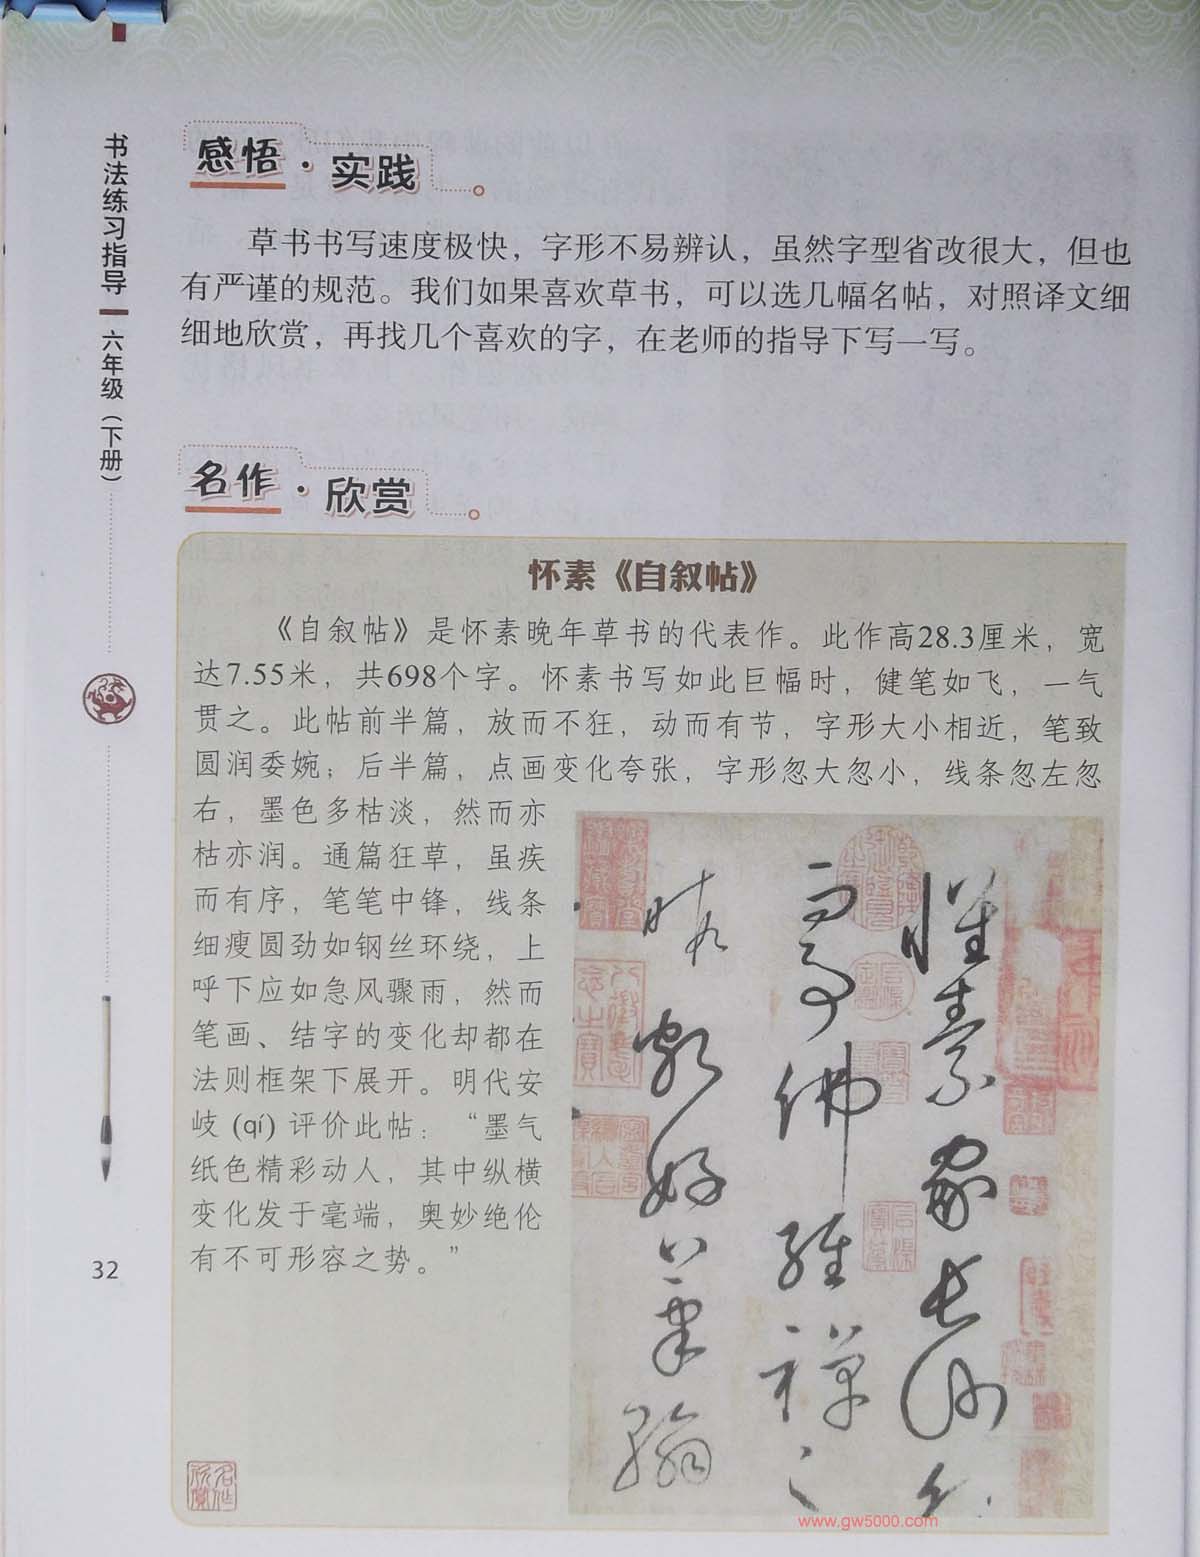 书法练习指导 六年级（下册）
感悟·实践
草书书写速度极快，字形不易辨认，虽然字型省改很大，但也
有严谨的规范。我们如果喜欢草书，可以选几幅名帖，对照译文细
细地欣赏，再找几个喜欢的字，在老师的指导下写一写。
名作·欣赏
怀素《自叙帖》
《自叙帖》是怀素晚年草书的代表作。此作高28.3厘米，宽
达7.55米，共698个字。怀素书写如此巨幅时，健笔如飞，一气
贯之。此帖前半篇，放而不狂，动而有节，字形大小相近，笔致
圆润委婉；后半篇，点画变化夸张，字形忽大忽小，线条忽左忽
右，墨色多枯淡，然而亦
枯亦润。通篇狂草，虽疾
而有序，笔笔中锋，线条
细瘦圆劲如钢丝环绕，上
呼下应如急风骤雨，然而
笔画、结字的变化却都在
法则框架下展开。明代安
岐 (qí) 评价此帖：“墨气
纸色精彩动人，其中纵横
变化发于毫端，奥妙绝伦
有不可形容之势。”
怀素家长沙幼
而事佛经禅之
暇颇好笔翰
名作欣赏
32
www.gw5000.com